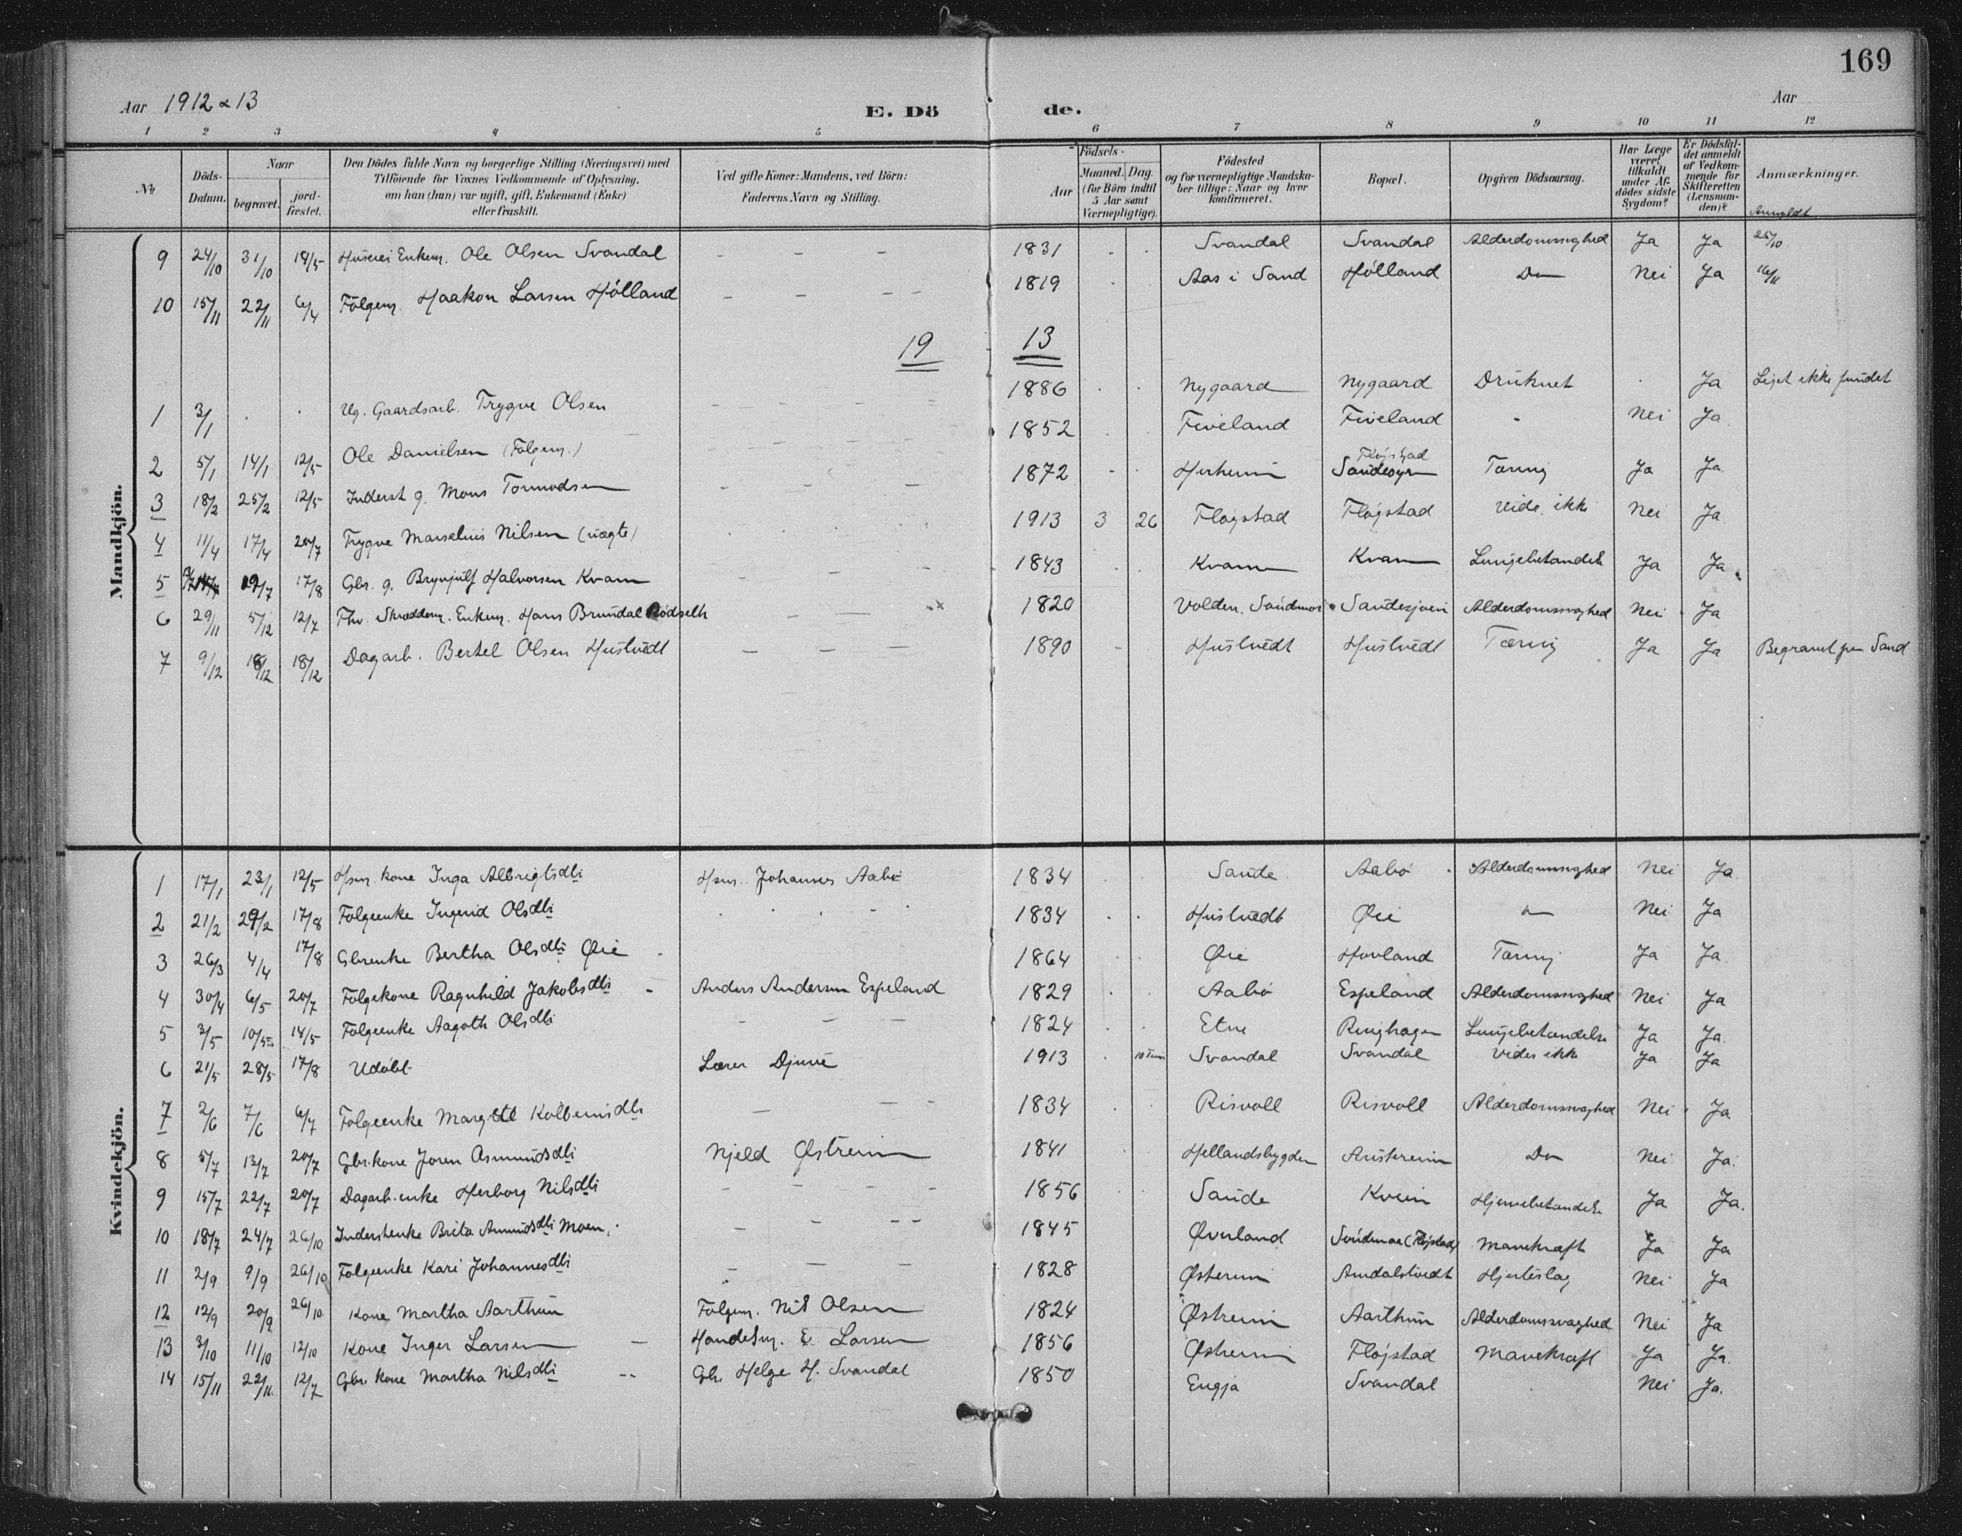 169
Aar 1912 & 13 E. Dö de. Aar
1 2 3 4 5 6 7 8 9 10 11 12
No
Döds-Datum.
Naar
begravet.
jord-fæstet.
Den Dödes fulde Navn og borgerlige Stilling (Næringsvei) med
Tilföiende for Voxnes Vedkommende af Oplysning,
om han (hun) var ugift, gift, Enkemand (Enke)
eller fraskilt.
Ved gifte Koner: Mandens, ved Börn:
Faderens Navn og Stilling.
Födsels-
Aar
Maaned. Dag.
(for Börn indtil
5 Aar samt
Værnepligtige).
Födested
og for værnepligtige Mandska-
ber tillige: Naar og hvor
konfirmeret.
Bopæl.
Opgiven Dödsaarsag.
Har Læge
været
tilkaldt
under Af-
dödes sidste
Sygdom?
Er Dödsfal-
det anmeldt
af Vedkom-
mende for
Skifteretten
(Lensman-
den)?
Anmærkninger.
Anmeldt
Mandkjön.
9 24/10 31/10 18/5 Ole Olsen Svandal - - - 1831 Svandal Svandal Alderdomssvaghed Ja Ja 25/10
10 15/11 22/11 6/4 Følgem. Haakon Larsen Hølland - - - 1819 Aas i Sand Hølland Do Nei Ja 16/11
19 13
1 3/1 Ug. Gaardsarb. Trygve Olsen 1886 Nygaard Nygaard Druknet Ja Liget ikke fundet
2 5/1 14/1 12/5 Ole Danielsen (Følgem.) 1852 Fiveland Fiveland - Nei Ja
3 18/2 25/2 12/5 Inderst g. Mons Tormodsen 1872 Fløgstad Tæring Ja Ja
4 11/4 17/4 20/7 Trygve Marselius Nilsen (uægte) 1913 3 26 Fløgstad Fløgstad vides ikke Nei Ja
5 19/7 17/8 Gbr. g. Brynjulf Halvorsen Kvam 1843 Kvam Kvam Lungebetændelse Ja Ja
6 29/11 5/12 12/7 Enkem. Hans Brundal 1820 Volden, Søndmør Sandesjøen Alderdomssvaghed Nei Ja
7 9/12 18/12 18/12 Dagarb. Bertel Olsen Hustvedt - - - 1890 Hustvedt Hustvedt Tæring Ja Ja Begravet paa Sand
Kvindekjön.
1 17/1 23/1 12/5 Hsm. kone Inga Albrigtsdtr Hsm. Johannes Aabø 1834 Saude Aabø Alderdomssvaghed Nei Ja
2 21/2 29/2 17/8 Følgeenke Ingerid Olsdtr 1834 Hustvedt Øie Do Nei Ja
3 26/3 4/4 17/8 Gbrenke Bertha Olsdtr Øie 1864 Øie Hovland Tæring Ja Ja
4 30/4 6/5 20/7 Følgekone Ragnhild Jakobsdtr Anders Andersen Espeland 1829 Aabø Espeland Alderdomssvaghed Nei Ja
5 3/5 10/5 14/5 Følgeenke Aagoth Olsdtr - - - 1824 Etne Ringhagen Lungebetændelse Ja Ja
6 21/5 28/5 17/8 Udøbt Lærer Djuve 1913 10 Tim Svandal Svandal vides ikke Ja Ja
7 2/6 7/6 6/7 Følgeenke Margrete Kolbeinsdtr - - 1834 Risvoll Risvoll Alderdomssvaghed Nei Ja
8 5/7 13/7 20/7 Gbr.kone Joren Asmundsdtr Njeld Østreim 1841 Hellandsbygden Austreim Do Nei Ja
9 15/7 22/7 20/7 Dagarb.enke Herborg Nilsdtr - - - 1856 Saude Kvein Hjernebetændelse Ja Ja.
10 18/7 24/7 26/10 Indersteenke Brita Amundsdtr Moen - - - 1845 Øverland Søndmoe (Fløgstad) Mavekræft Ja Ja
11 2/9 9/9 26/10 Følgeenke Kari Johannesdtr - - - 1828 Østreim Amdalstvedt Hjerteslag Nei Ja
12 12/9 20/9 26/10 Kone Martha Aarthun Følgem. Nils Olsen 1824 Østreim Aarthun Alderdomssvaghed Nei Ja
13 3/10 11/10 12/10 Kone Inger Larsen - Handelsm. E. Larsen 1856 Østreim Fløgstad Mavekræft Ja Ja.
14 15/11 22/11 12/7 Gbr. kone Martha Nilsdtr - Gbr. Helge H. Svandal 1850 Engja Svandal Nei Ja.